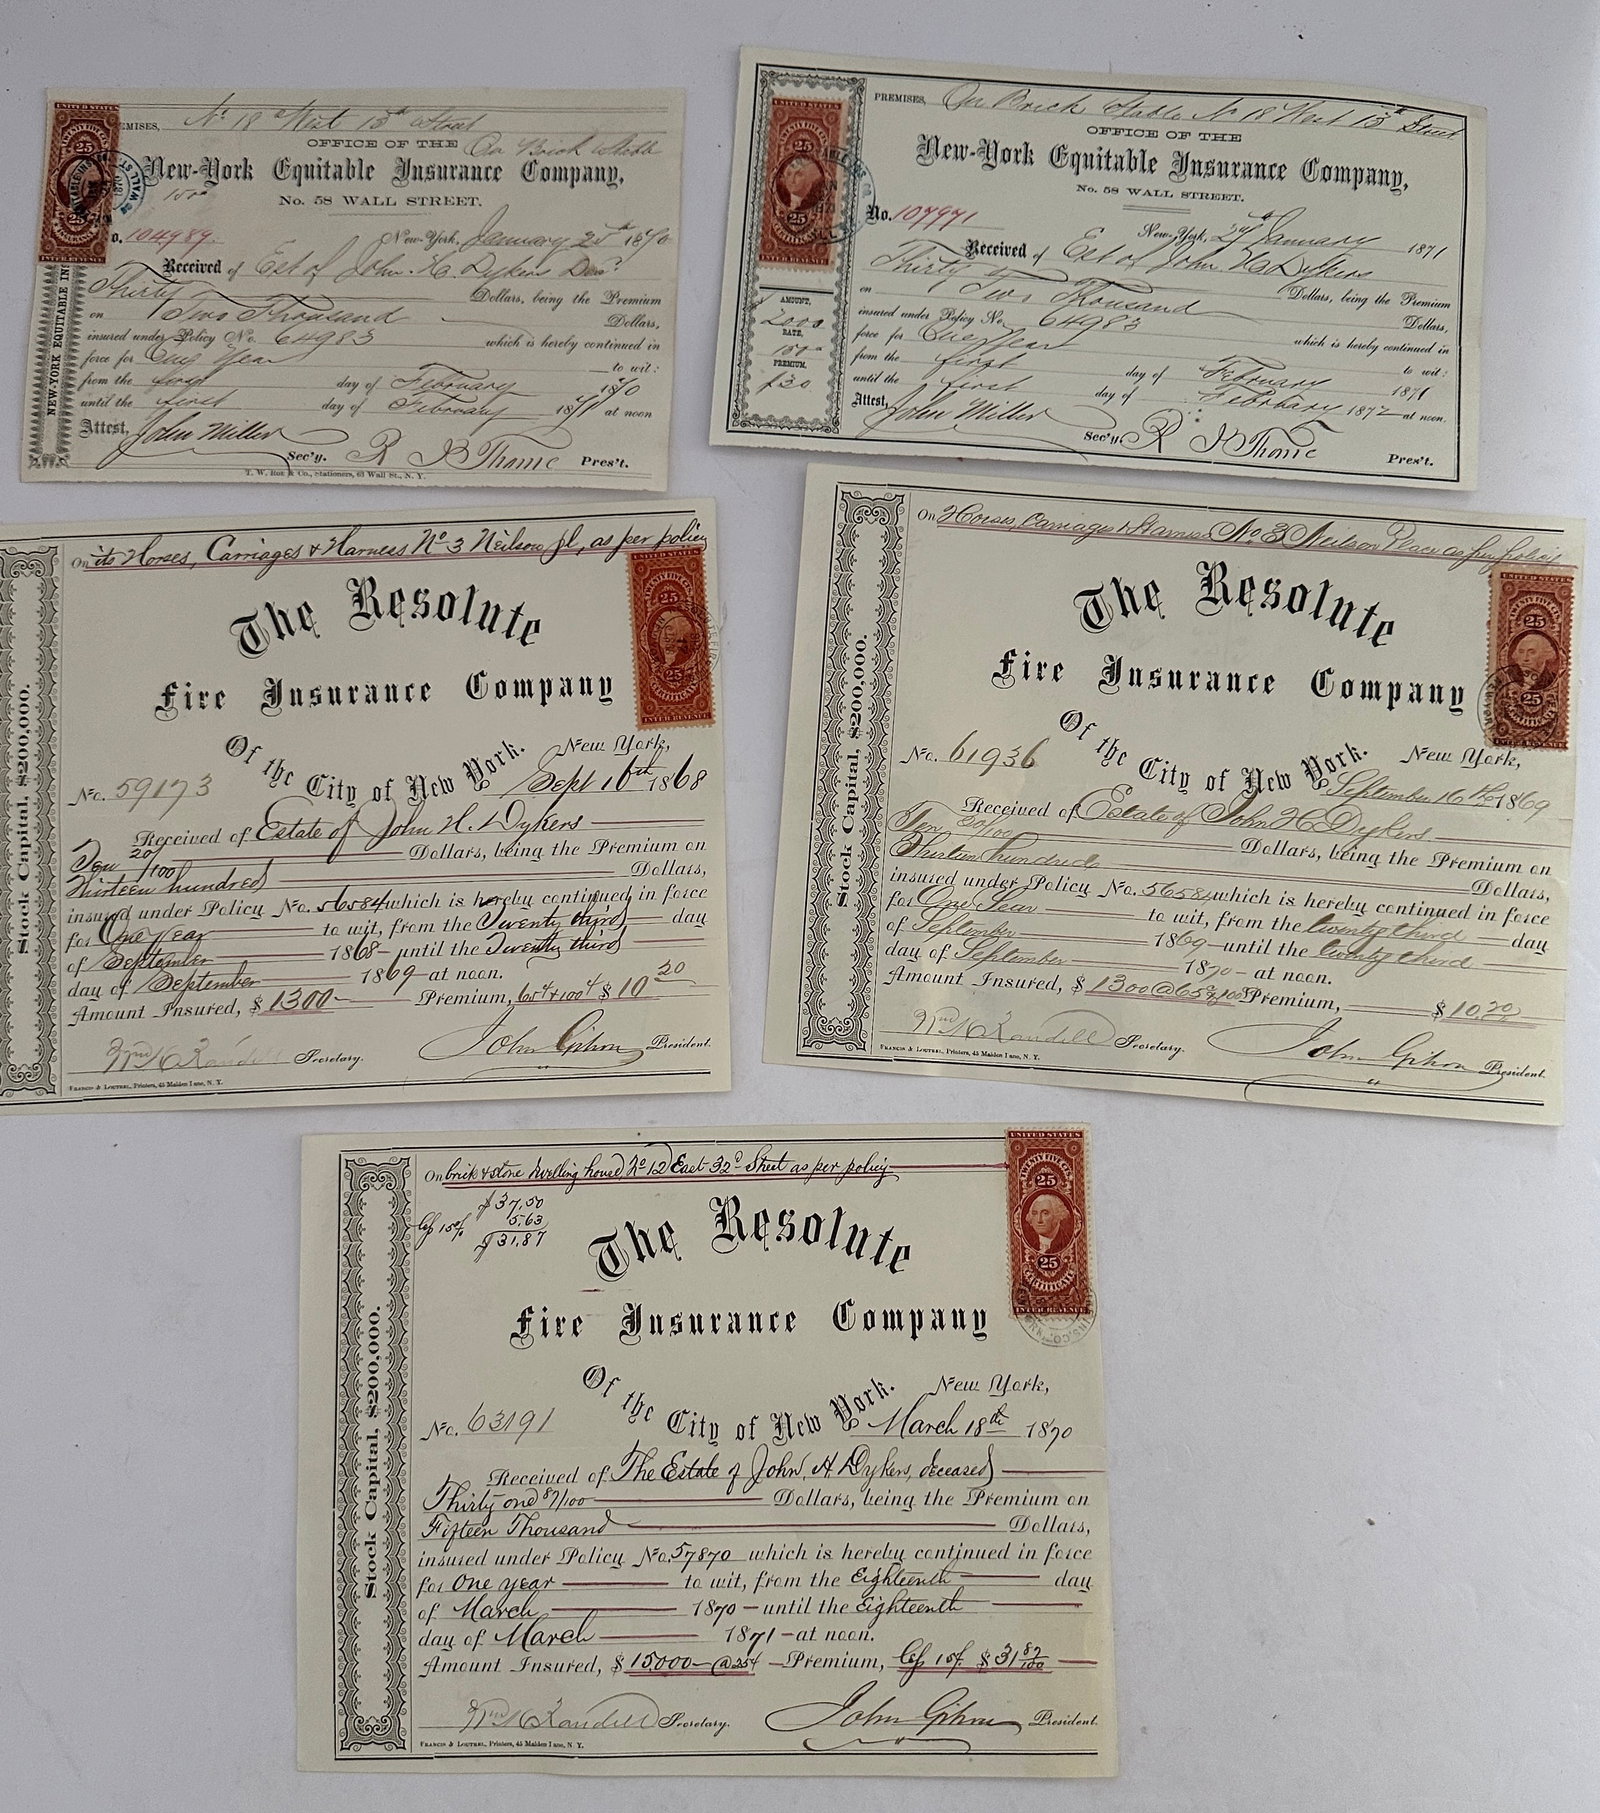 PREMISES, No 18 West 13th Street
OFFICE OF THE On Brick Stable
New-York Equitable Insurance Company,
No. 58 WALL STREET.
No. 104989. New-York, January 25th 1870
Received of Est of John. H. Dykers Decd
Thirty Dollars, being the Premium
on Two Thousand Dollars,
insured under Policy No. 64983 which is hereby continued in
force for One Year to wit:
from the first day of February 1870
until the first day of February 1871 at noon
Attest, John Miller Sec'y. R J Thorne Pres't.
T. W. Roe & Co., Stationers, 63 Wall St., N. Y.
NEW-YORK EQUITABLE INS
UNITED STATES
TWENTY FIVE CENTS
25
25
PREMISES, On Brick Stable No 18 West 13th Street
OFFICE OF THE
New-York Equitable Insurance Company,
No. 58 WALL STREET.
No. 107971
New-York, January 1871
Received of Est of John H Dykers
Thirty Dollars, being the Premium
on Two Thousand Dollars,
insured under Policy No. 64983 which is hereby continued in
force for One Year to wit:
from the first day of February 1871
until the first day of February 1872 at noon.
Attest, John Miller Sec'y. R J Thorne Pres't.
AMOUNT,
2000
RATE,
PREMIUM,
$30
UNITED STATES
25
25
CERTIFICATE
On its Horses, Carriages & Harness No 3 Neilson pl, as per policy
The Resolute
Fire Insurance Company
Of the City of New York.
New York,
No. 59173 Sept 16th 1868
Received of Estate of John H. Dykers
Ten 20/100 Dollars, being the Premium on
Thirteen hundred Dollars,
insured under Policy No. 56584 which is hereby continued in force
for One year to wit, from the Twenty third day
of September 1868 until the Twenty third
day of September 1869 at noon.
Amount Insured, $ 1300 Premium, 65¢ & 100¢ $ 10 20
Wm M Randell Secretary. John Gihon President.
FRANCIS & LOUTREL, Printers, 45 Maiden Lane, N. Y.
Stock Capital, $200,000.
TWENTY FIVE CENTS
25
25
INTER. REVENUE
On Horses, Carriages & Harness No 3 Neilson Place as per policy
The Resolute
Fire Insurance Company
Of the City of New York.
New York,
No. 61936 September 16th 1869
Received of Estate of John H Dykers
Ten 20/100 Dollars, being the Premium on
Thirteen hundred Dollars,
insured under Policy No. 56584 which is hereby continued in force
for One Year to wit, from the twenty third day
of September 1869 until the twenty third
day of September 1870 at noon.
Amount Insured, $ 1300 @ 65¢ & 100 Premium, $ 10.20
Wm M Randell Secretary. John Gihon President.
FRANCIS & LOUTREL, Printers, 45 Maiden Lane, N. Y.
Stock Capital, $200,000.
UNITED STATES
25
25
CERTIFICATE
On brick & stone dwelling house, No 12 East 32d Street as per policy
$37.50
Less 15% 5.63
$31.87
The Resolute
Fire Insurance Company
Of the City of New York.
New York,
No. 63191 March 18th 1870
Received of The Estate of John, H Dykers, deceased
Thirty one 87/100 Dollars, being the Premium on
Fifteen Thousand Dollars,
insured under Policy No. 57870 which is hereby continued in force
for One year to wit, from the Eighteenth day
of March 1870 until the Eighteenth
day of March 1871 at noon.
Amount Insured, $ 15000 @ 25¢ Premium, Less 15% $ 31 87/100
Wm M Randell Secretary. John Gihon President.
FRANCIS & LOUTREL, Printers, 45 Maiden Lane, N. Y.
Stock Capital, $200,000.
UNITED STATES
TWENTY FIVE CENTS
25
25
CERTIFICATE
INTER. REVENUE